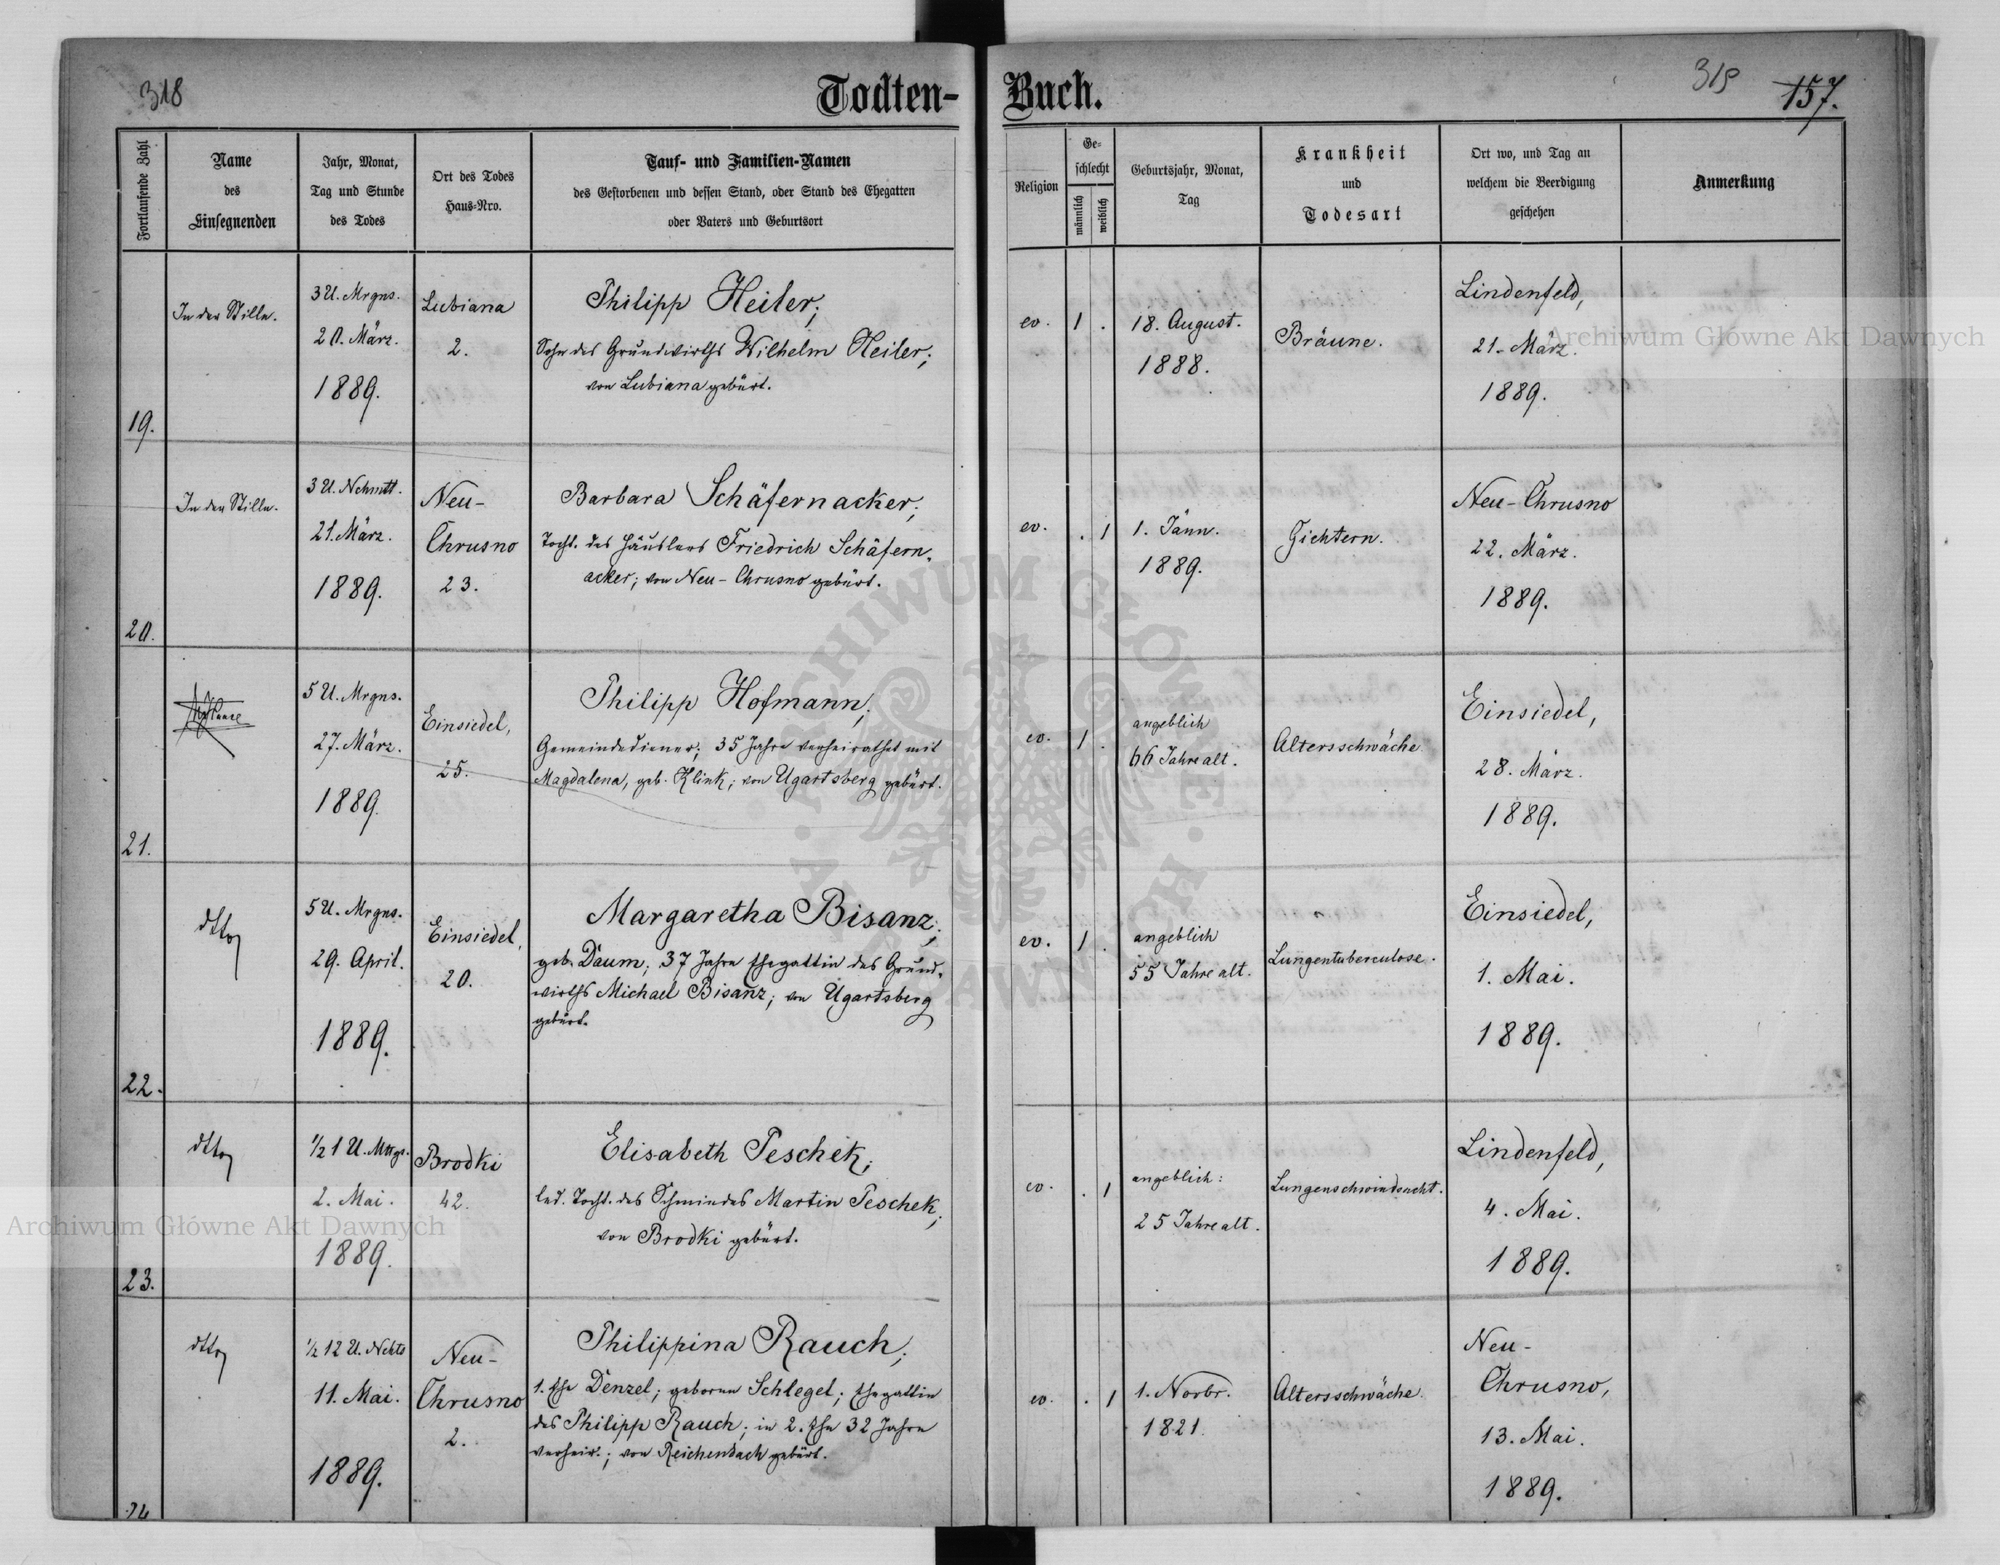 318
Todten-
Buch.
319
157.
Fortlaufende Zahl
Name
des
Einsegnenden
Jahr, Monat,
Tag und Stunde
des Todes
Ort des Todes
Haus-Nro.
Tauf- und Familien-Namen
des Gestorbenen und dessen Stand, oder Stand des Ehegatten
oder Vaters und Geburtsort
Religion
Ge-
schlecht
männlich
weiblich
Geburtsjahr, Monat,
Tag
Krankheit
und
Todesart
Ort wo, und Tag an
welchem die Beerdigung
geschehen
Anmerkung
19.
In der Stille.
3 U. Mrgns.
20. März.
1889.
Lubiana
2.
Philipp Heiler;
Sohn des Grundwirths Wilhelm Heiler;
von Lubiana gebürt.
ev.
1 .
18. August.
1888.
Bräune.
Lindenfeld,
21. März.
1889.
20.
In der Stille.
3 U. Nchmtt.
21. März.
1889.
Neu-
Chrusno
23.
Barbara Schäfernacker;
Tocht. des Häuslers Friedrich Schäfern-
acker; von Neu-Chrusno gebürt.
ev.
. 1
1. Jänn.
1889.
Gichtern.
Neu-Chrusno
22. März.
1889.
21.
5 U. Mrgns.
27. März.
1889.
Einsiedel,
25.
Philipp Hofmann,
Gemeindediener; 35 Jahre verheirathet mit
Magdalena, geb. Klink; von Ugartsberg gebürt.
ev.
1 .
angeblich
66 Jahre alt.
Altersschwäche
Einsiedel,
28. März.
1889.
22.
dtto
5 U. Mrgns.
29. April.
1889.
Einsiedel,
20.
Margaretha Bisanz;
geb. Daum; 37 Jahre Ehegattin des Grund-
wirths Michael Bisanz; von Ugartsberg
gebürt.
ev.
1 .
angeblich
55 Jahre alt.
Lungentuberculose.
Einsiedel,
1. Mai.
1889.
23.
dtto
1/2 1 U. Mttgs.
2. Mai.
1889.
Brodki
42.
Elisabeth Peschek;
led. Tocht. des Schmiedes Martin Peschek;
von Brodki gebürt.
ev.
. 1
angeblich:
25 Jahre alt.
Lungenschwindsucht.
Lindenfeld,
4. Mai.
1889.
24
dtto
1/2 12 U. Nchts
11. Mai.
1889.
Neu-
Chrusno
2.
Philippina Rauch;
1. Ehe Denzel; geborne Schlegel; Ehegattin
des Philipp Rauch; in 2. Ehe 32 Jahre
verheir.; von Reichenbach gebürt.
ev.
. 1
1. Novbr.
1821.
Altersschwäche.
Neu-
Chrusno,
13. Mai.
1889.
Archiwum Główne Akt Dawnych
Archiwum Główne Akt Dawnych
ARCHIWUM GŁÓWNE AKT DAWNYCH